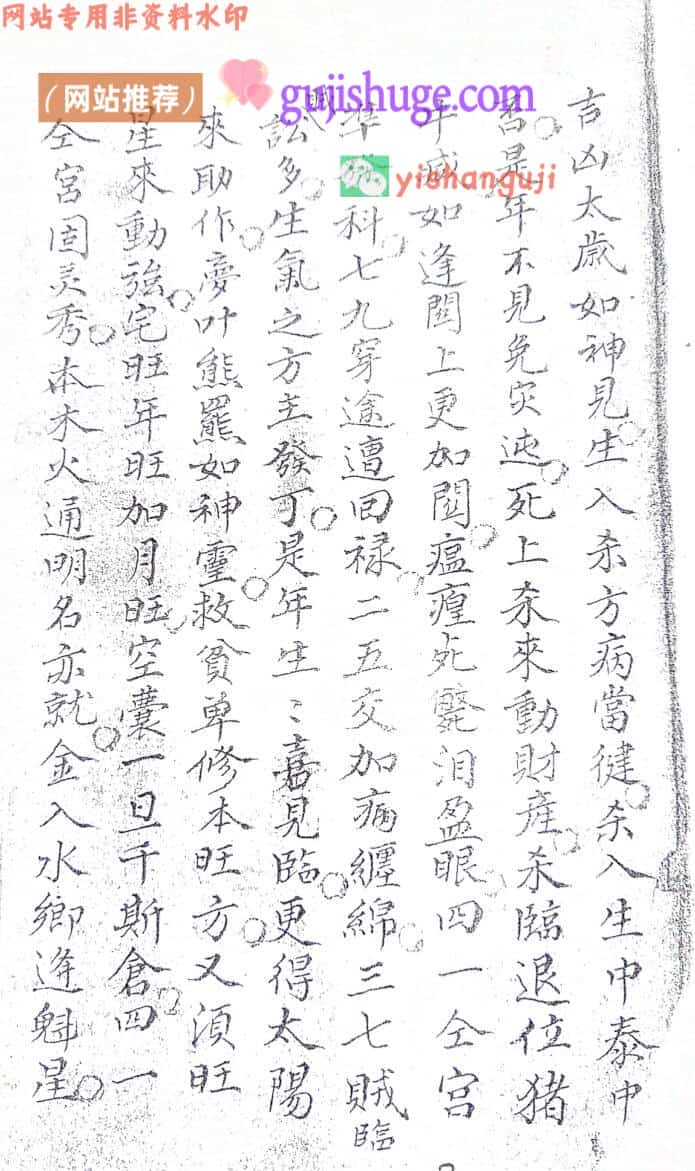 网站专用非资料水印
（网站推荐）
gujishuge.com
yishanguji
吉凶太歲如神見生入杀方病當徤杀入生中泰中
否是年不見免灾迍死上杀來動財産杀臨退位猪
牛減如逢閗上更加閗瘟瘟死斃泪盈眼四一仝宮
準科七九穿途遭回禄二五交加病纏綿三七賊臨
訟多生氣之方主發可是年生〻嘉見臨更得太陽
來助作夣叶熊羆如神䨩救貧单修本旺方又湏旺
星來動強宅旺年旺加月旺空囊一旦千斯倉四一
仝宮固灵秀本木火通明名亦就金入水鄉逢魁星